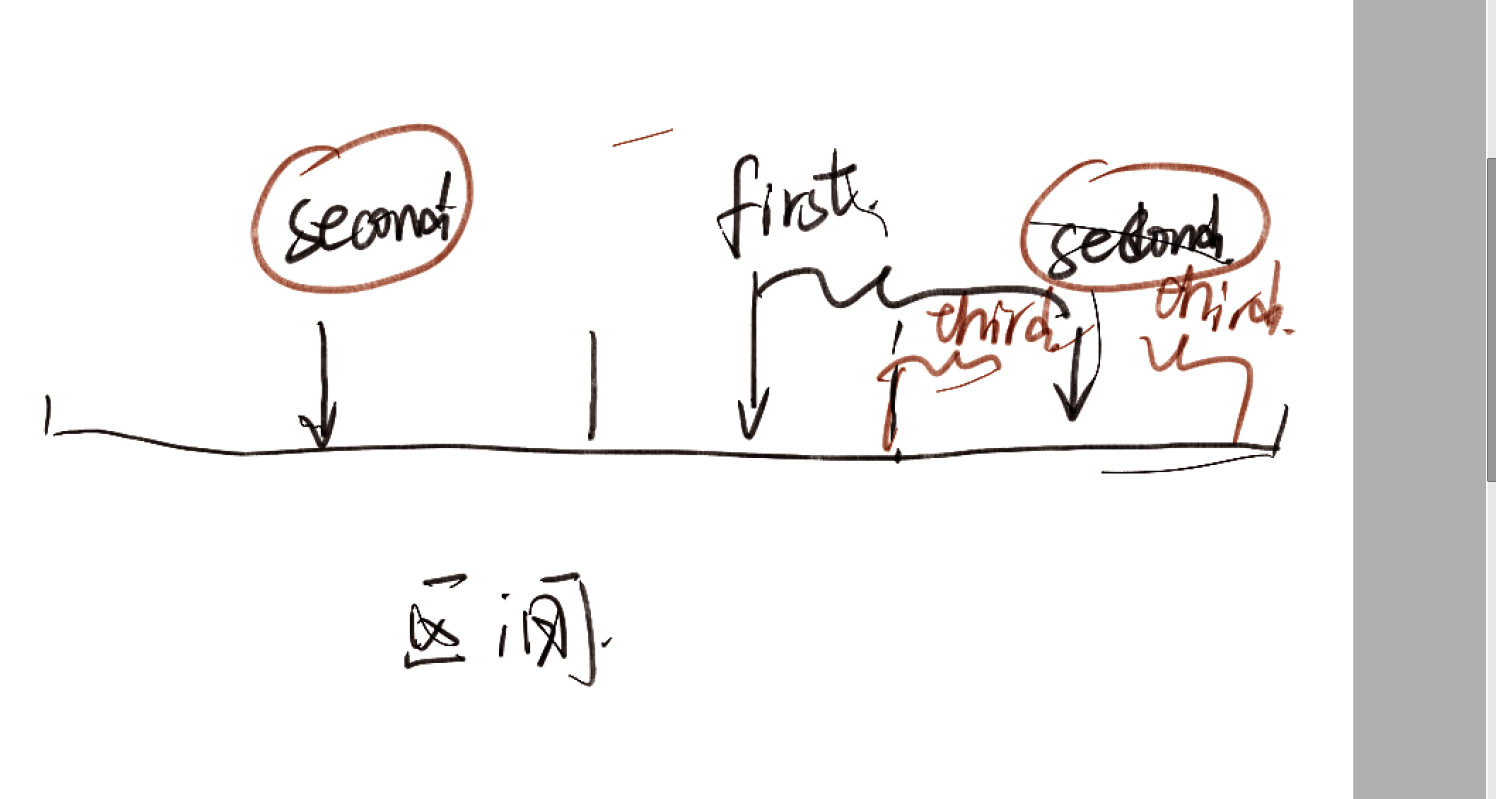 second first. second.
third. third.
区间.